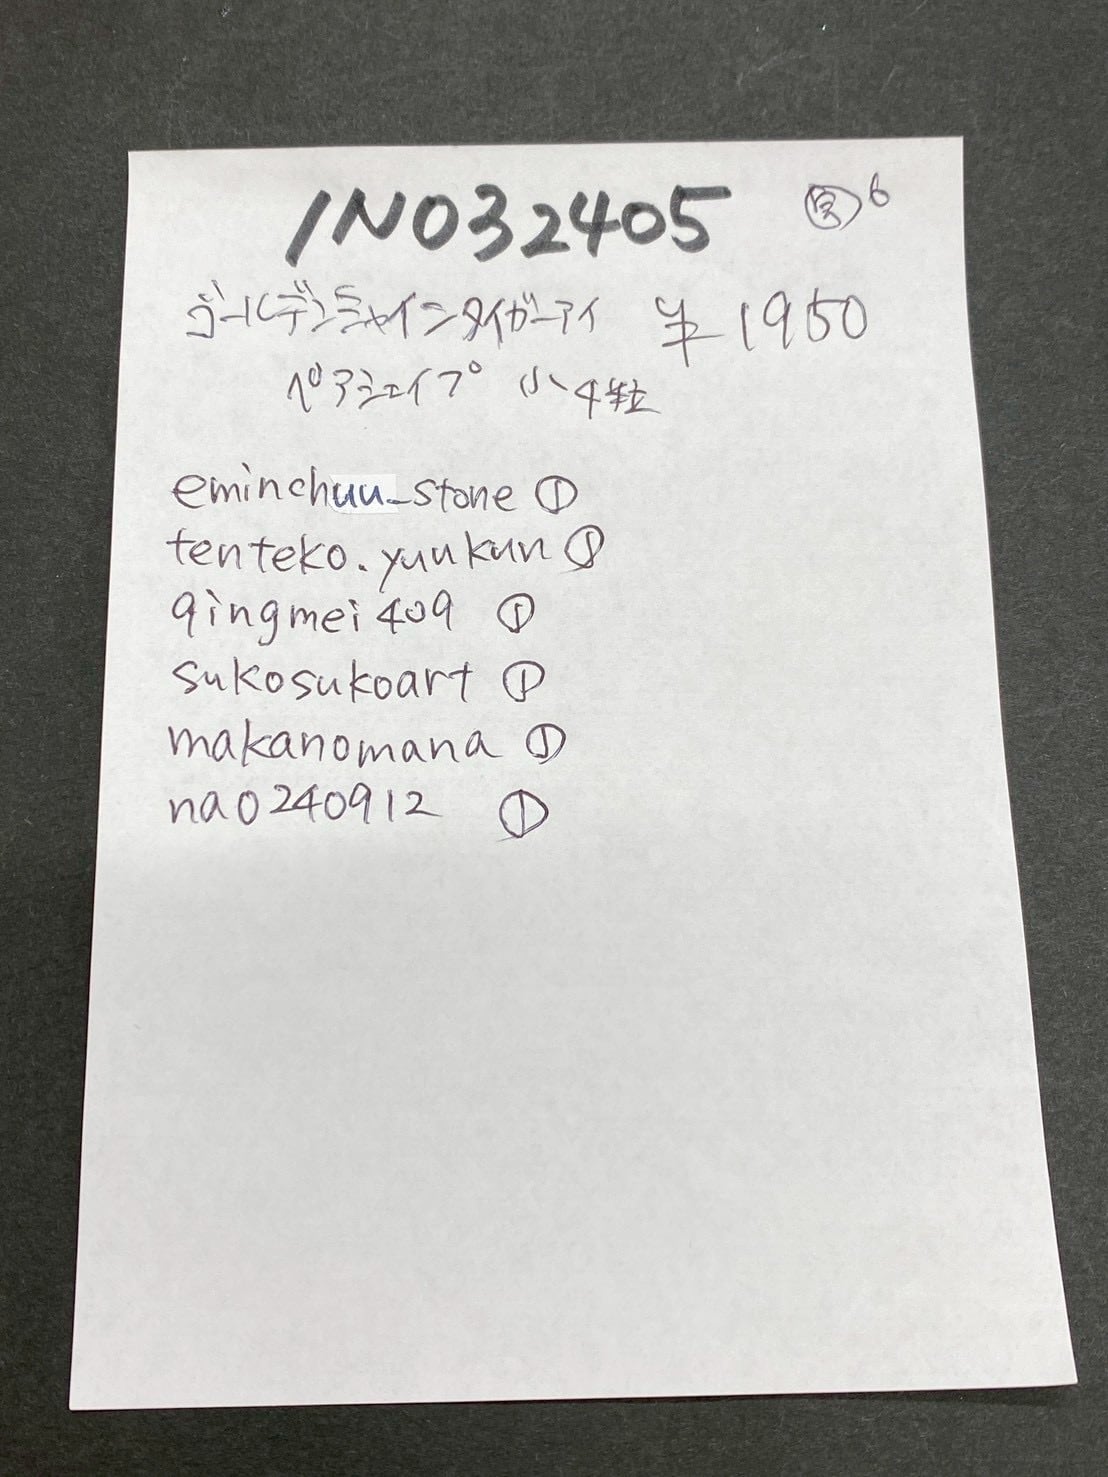 INO32405 6
ゴールデンシャインタイガーアイ ¥1950
ペアシェイプ 小4粒
eminchuu_stone ①
tenteko.yuukun ①
qingmei409 ①
sukosukoart ①
makanomana ①
na0240912 ①